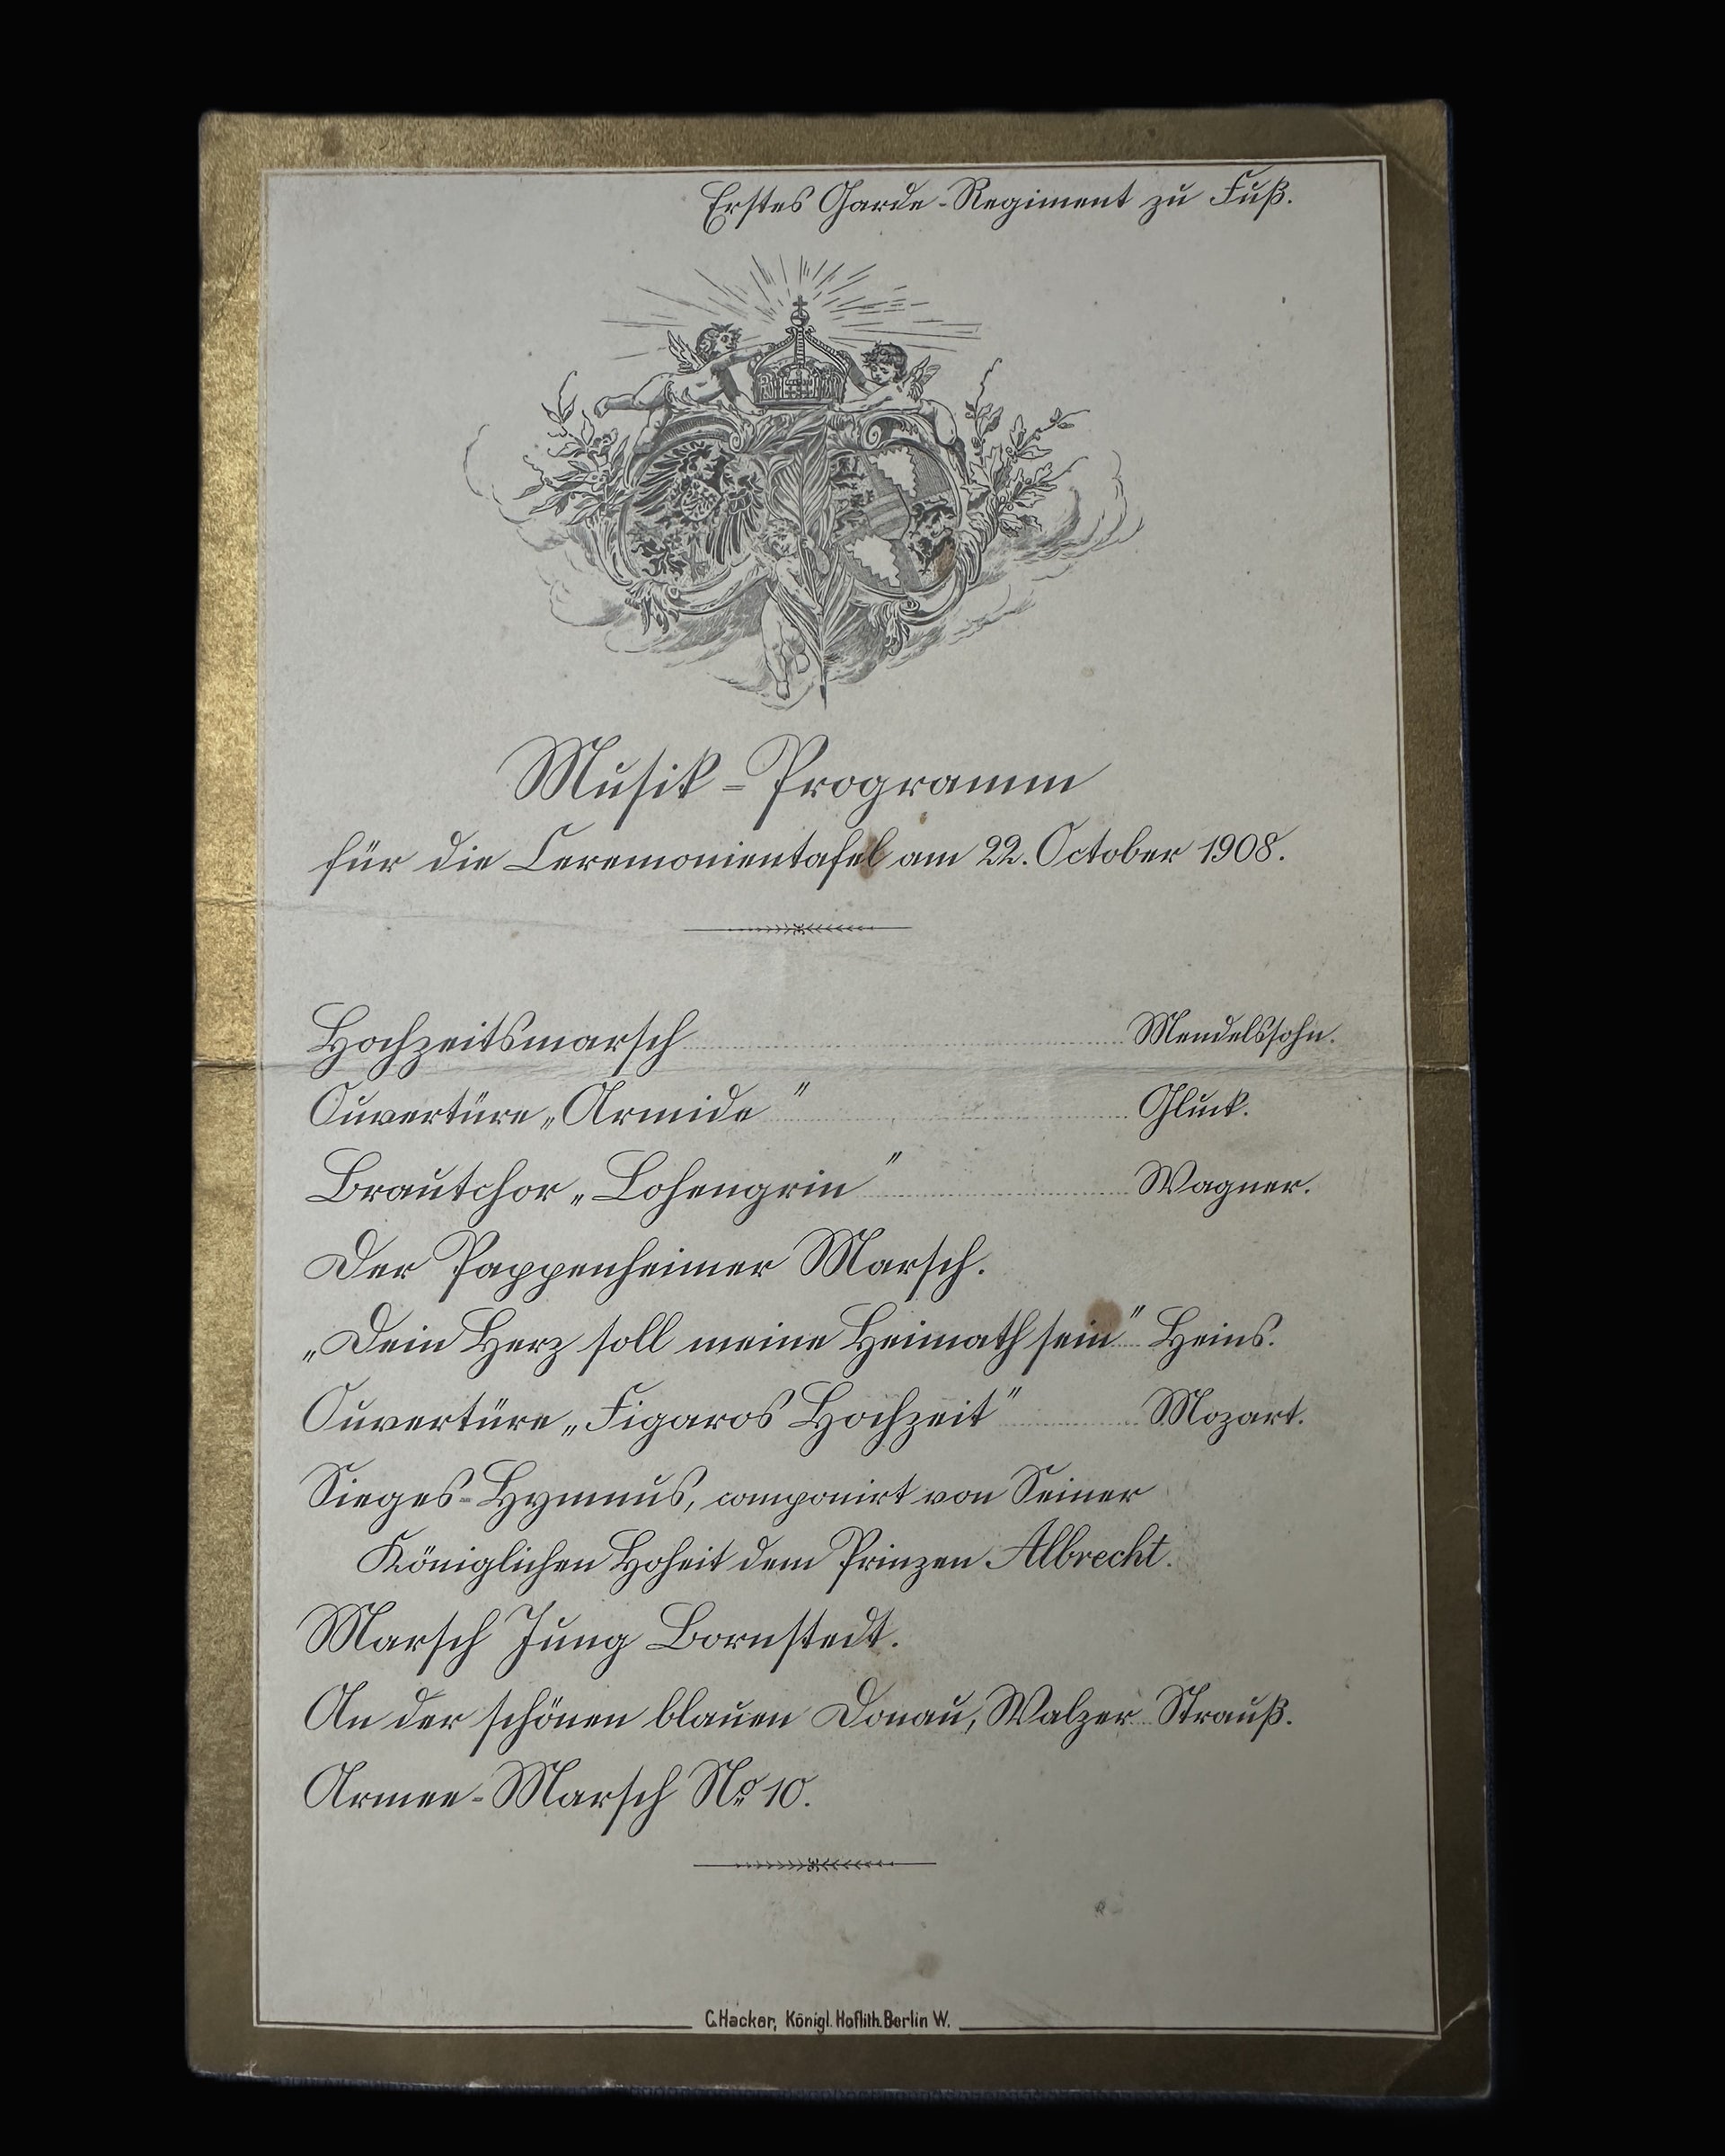 Erstes Garde-Regiment zu Fuß.
Musik-Programm
für die Ceremonientafel am 22. October 1908.
Hochzeitsmarsch Mendelssohn.
Ouvertüre „Armide" Gluck.
Brautchor „Lohengrin" Wagner.
Der Pappenheimer Marsch.
„Dein Herz soll meine Heimath sein" Heins.
Ouvertüre „Figaros Hochzeit" Mozart.
Sieges-Hymnus, componirt von Seiner
Königlichen Hoheit dem Prinzen Albrecht.
Marsch Jung Bornstedt.
An der schönen blauen Donau, Walzer Strauß.
Armee-Marsch No 10.
C. Hacker, Königl. Hoflith. Berlin W.